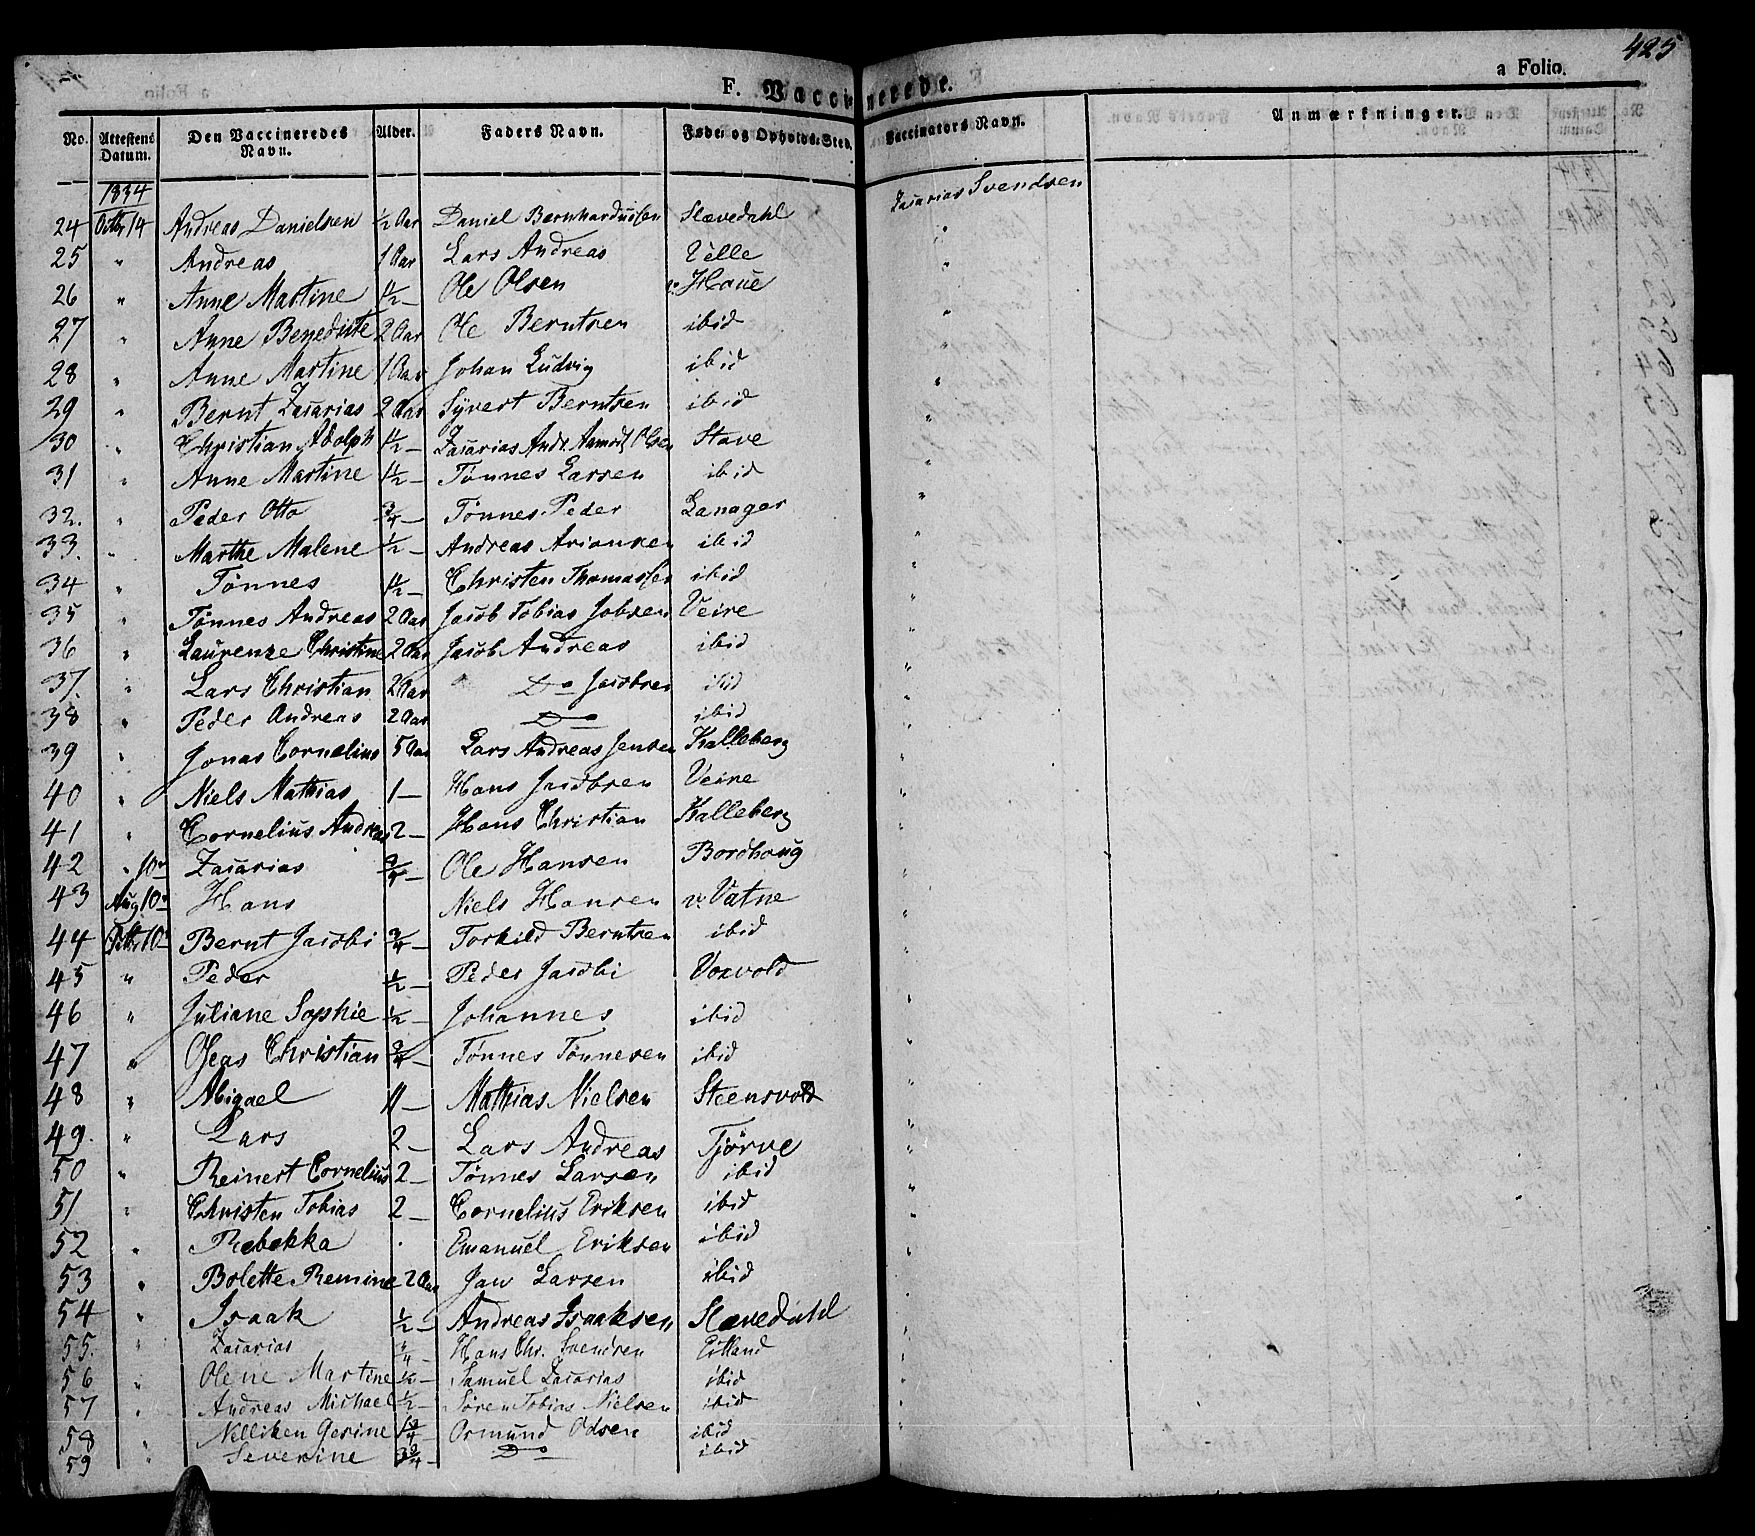 425
F. Vaccinerede.
a Folio.
No. Attestens Datum. Den Vaccineredes Navn. Alder. Faders Navn. Føde- og Opholds-Sted. Vaccinators Navn. Anmærkninger.
1834
24 Octbr 14 Andreas Danielsen ½ Aar Daniel Bernhardussen Slævedahl Zacarias Svendsen
25 " Andreas 1 Aar Lars Andreas Velle "
26 " Anne Martine 1½ – Ole Olsen v. Haue "
27 " Anne Benedicte 2 Aar Ole Berntsen ibid "
28 " Anne Martine 1 Aar Johan Ludvig ibid "
29 " Bernt Zacarias 2 Aar Syvert Berntsen ibid "
30 " Christian Adolph 1½ – Zacarias Olsen Stave "
31 " Anne Martine 1½ – Tønnes Larsen ibid "
32. " Peder Otto ¾ – Tønnes Peder Lanager "
33. " Marthe Malene ½ – Andreas Arionsen ibid "
34 " Tønnes 1½ – Christen Thomassen ibid "
35 " Tønnes Andreas 2 Aar Jacob Tobias Jobsen Veire "
36 " Laurenze Christine 2 Aar Jacob Andreas ibid "
37. " Lars Christian 2 Aar Do Jacobsen ibid "
38 " Peder Andreas 2 Aar Do ibid "
39 " Jonas Cornelius 5 Aar Lars Andreas Jensen Kalleberg "
40 " Niels Mathias 1 – Hans Jacobsen Veire "
41 " Cornelius Andreas 2 – Hans Christian Kalleberg "
42 " 10 Zacarias ¾ – Ole Hansen Bordhoug "
43 Aug 10 Hans Niels Hansen v. Vatne "
44 Octbr 10 Bernt Jacobi ¾ – Torkild Berntsen ibid "
45 " Peder ½ – Peder Jacobi Voxvold "
46 " Juliane Sophie ½ – Johannes ibid "
47 " Oseas Christian ¾ – Tønnes Tønnesen ibid "
48 " Abigael 11 – Mathias Nielsen Steensvold "
49. " Lars 2 – Lars Andreas Tjørve "
50 " Reinert Cornelius 2 – Tønnes Larsen ibid "
51 " Christen Tobias 2 – Cornelius Eriksen ibid "
52 " Rebekka . Emanuel Eriksen ibid "
53 " Bolette Remine 2 Aar Jan Larsen ibid "
54 " Isaak ½ – Andreas Isaaksen Slævedahl "
55. " Zacarias ¾ – Hans Chr. Svendsen Eitland "
56 " Olene Martine ½ – Samuel Zacarias ibid "
57 " Andreas Michael ½ – Søren Tobias Nielsen ibid "
58 " Nilliken Gerine 1¾ Ormund Odsen ibid
59 " Severine 3¾ – Do ibid